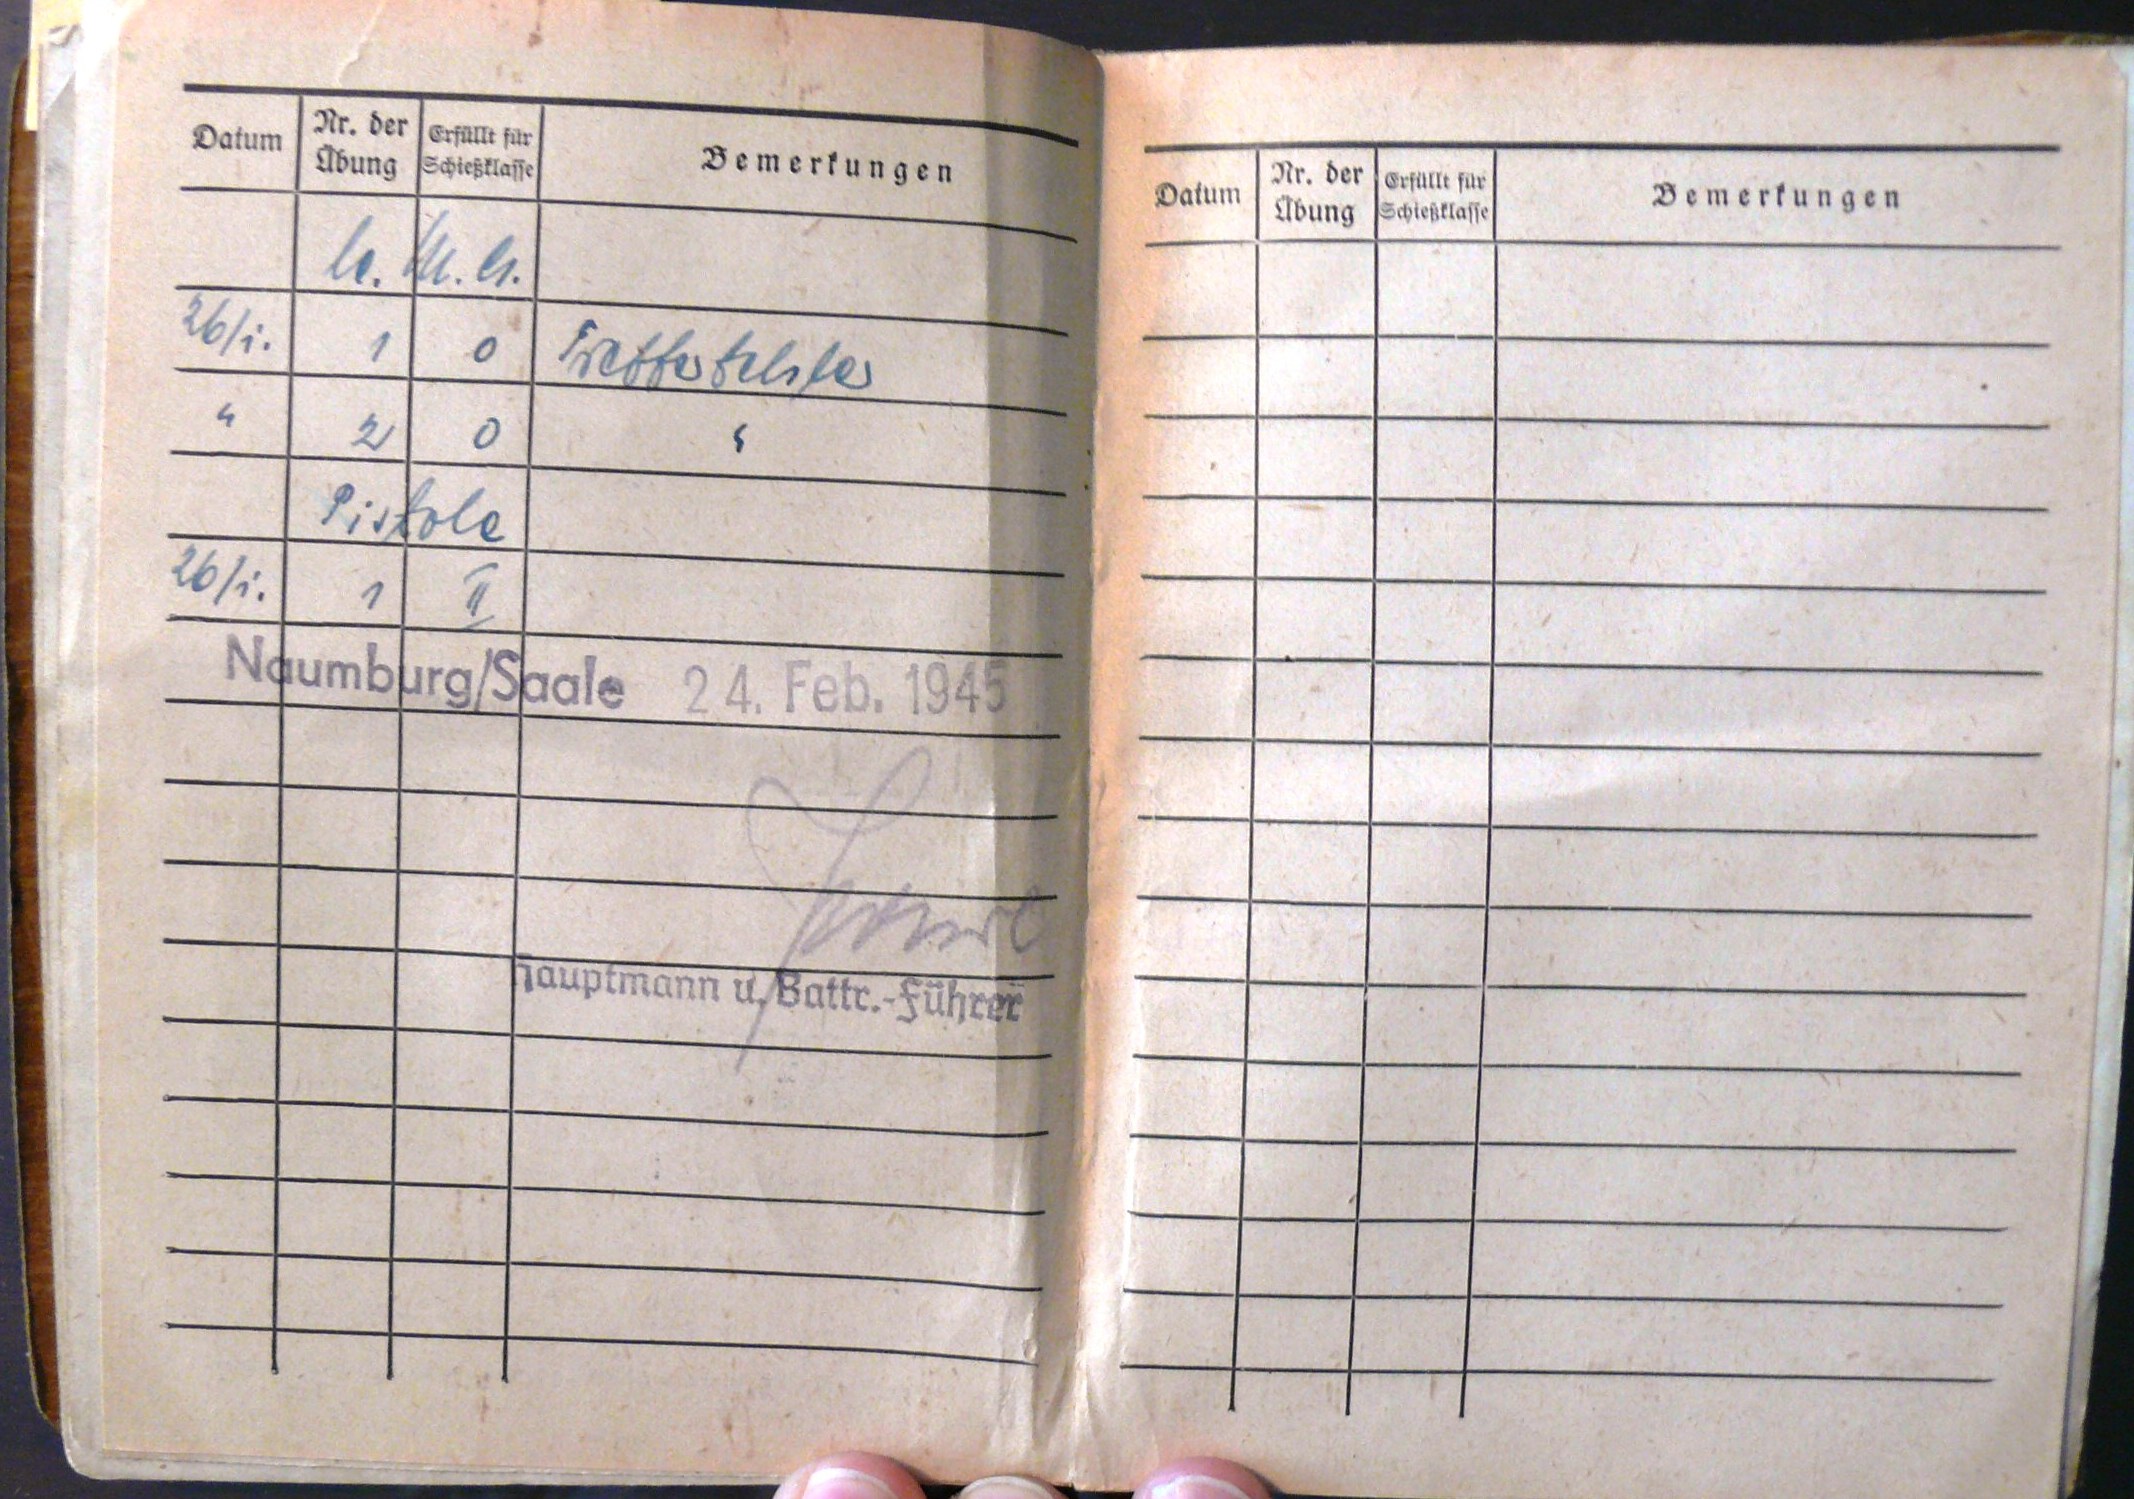 Datum Nr. der Übung Erfüllt für Schießklasse Bemerkungen
le. M. G.
26/1. 1 0 Trefferfehler
" 2 0 "
Pistole
26/1. 1 II
Naumburg/Saale 24. Feb. 1945
Hauptmann u. Battr.-Führer
Datum Nr. der Übung Erfüllt für Schießklasse Bemerkungen